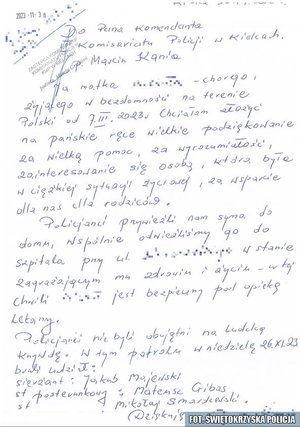 2023 -11- 3
Do Pana Komendanta
Komisariatu Policji w Kielcach.
p. Marcin Kania
Ja matka - chorego,
żyjącego w bezdomności na terenie
Polski od 7.III.2023r Chciałam złożyć
na pańskie ręce wielkie podziękowanie
za wielką pomoc, za wyrozumiałość,
zainteresowanie się osobą, która była
w ciężkiej sytuacji życiowej, za wsparcie
dla nas dla rodziców.
Policjanci przywieźli nam syna do
domu, wspólnie odwieźliśmy go do
Szpitala przy ul. w stanie
zagrażającym mu zdrowiu i życiu - w tej
Chwili jest bezpieczny pod opieką
Lekarzy.
Policjanci nie byli obojętni na Ludzką
Krzywdę. W tym patrolu w niedzielę 26.XI.23
brali udział:
sierżant: Jakub Majewski
st posterunkowy: Mateusz Gibas
st. Mikołaj Smardowski.
(Dziękuję
FOT. ŚWIĘTOKRZYSKA POLICJA